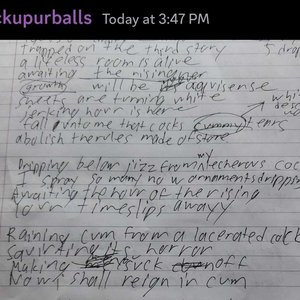 ckupurballs Today at 3:47 PM
trapped on the third story 5 drop
a lifeless room is alive
awaiting the rising
growths will be
sheets are turning white
hour is here
fall onto me that cocks cummy tears
abolish the rules made of stone
white
des
w
Dripping below jizz from my lecherous coc
I spray so many now ornaments dripping
Awaiting the hour of the rising
your time slips away
Raining cum from a lacerated cock
squirting its horror
Making suck off
Now I shall reign in cum